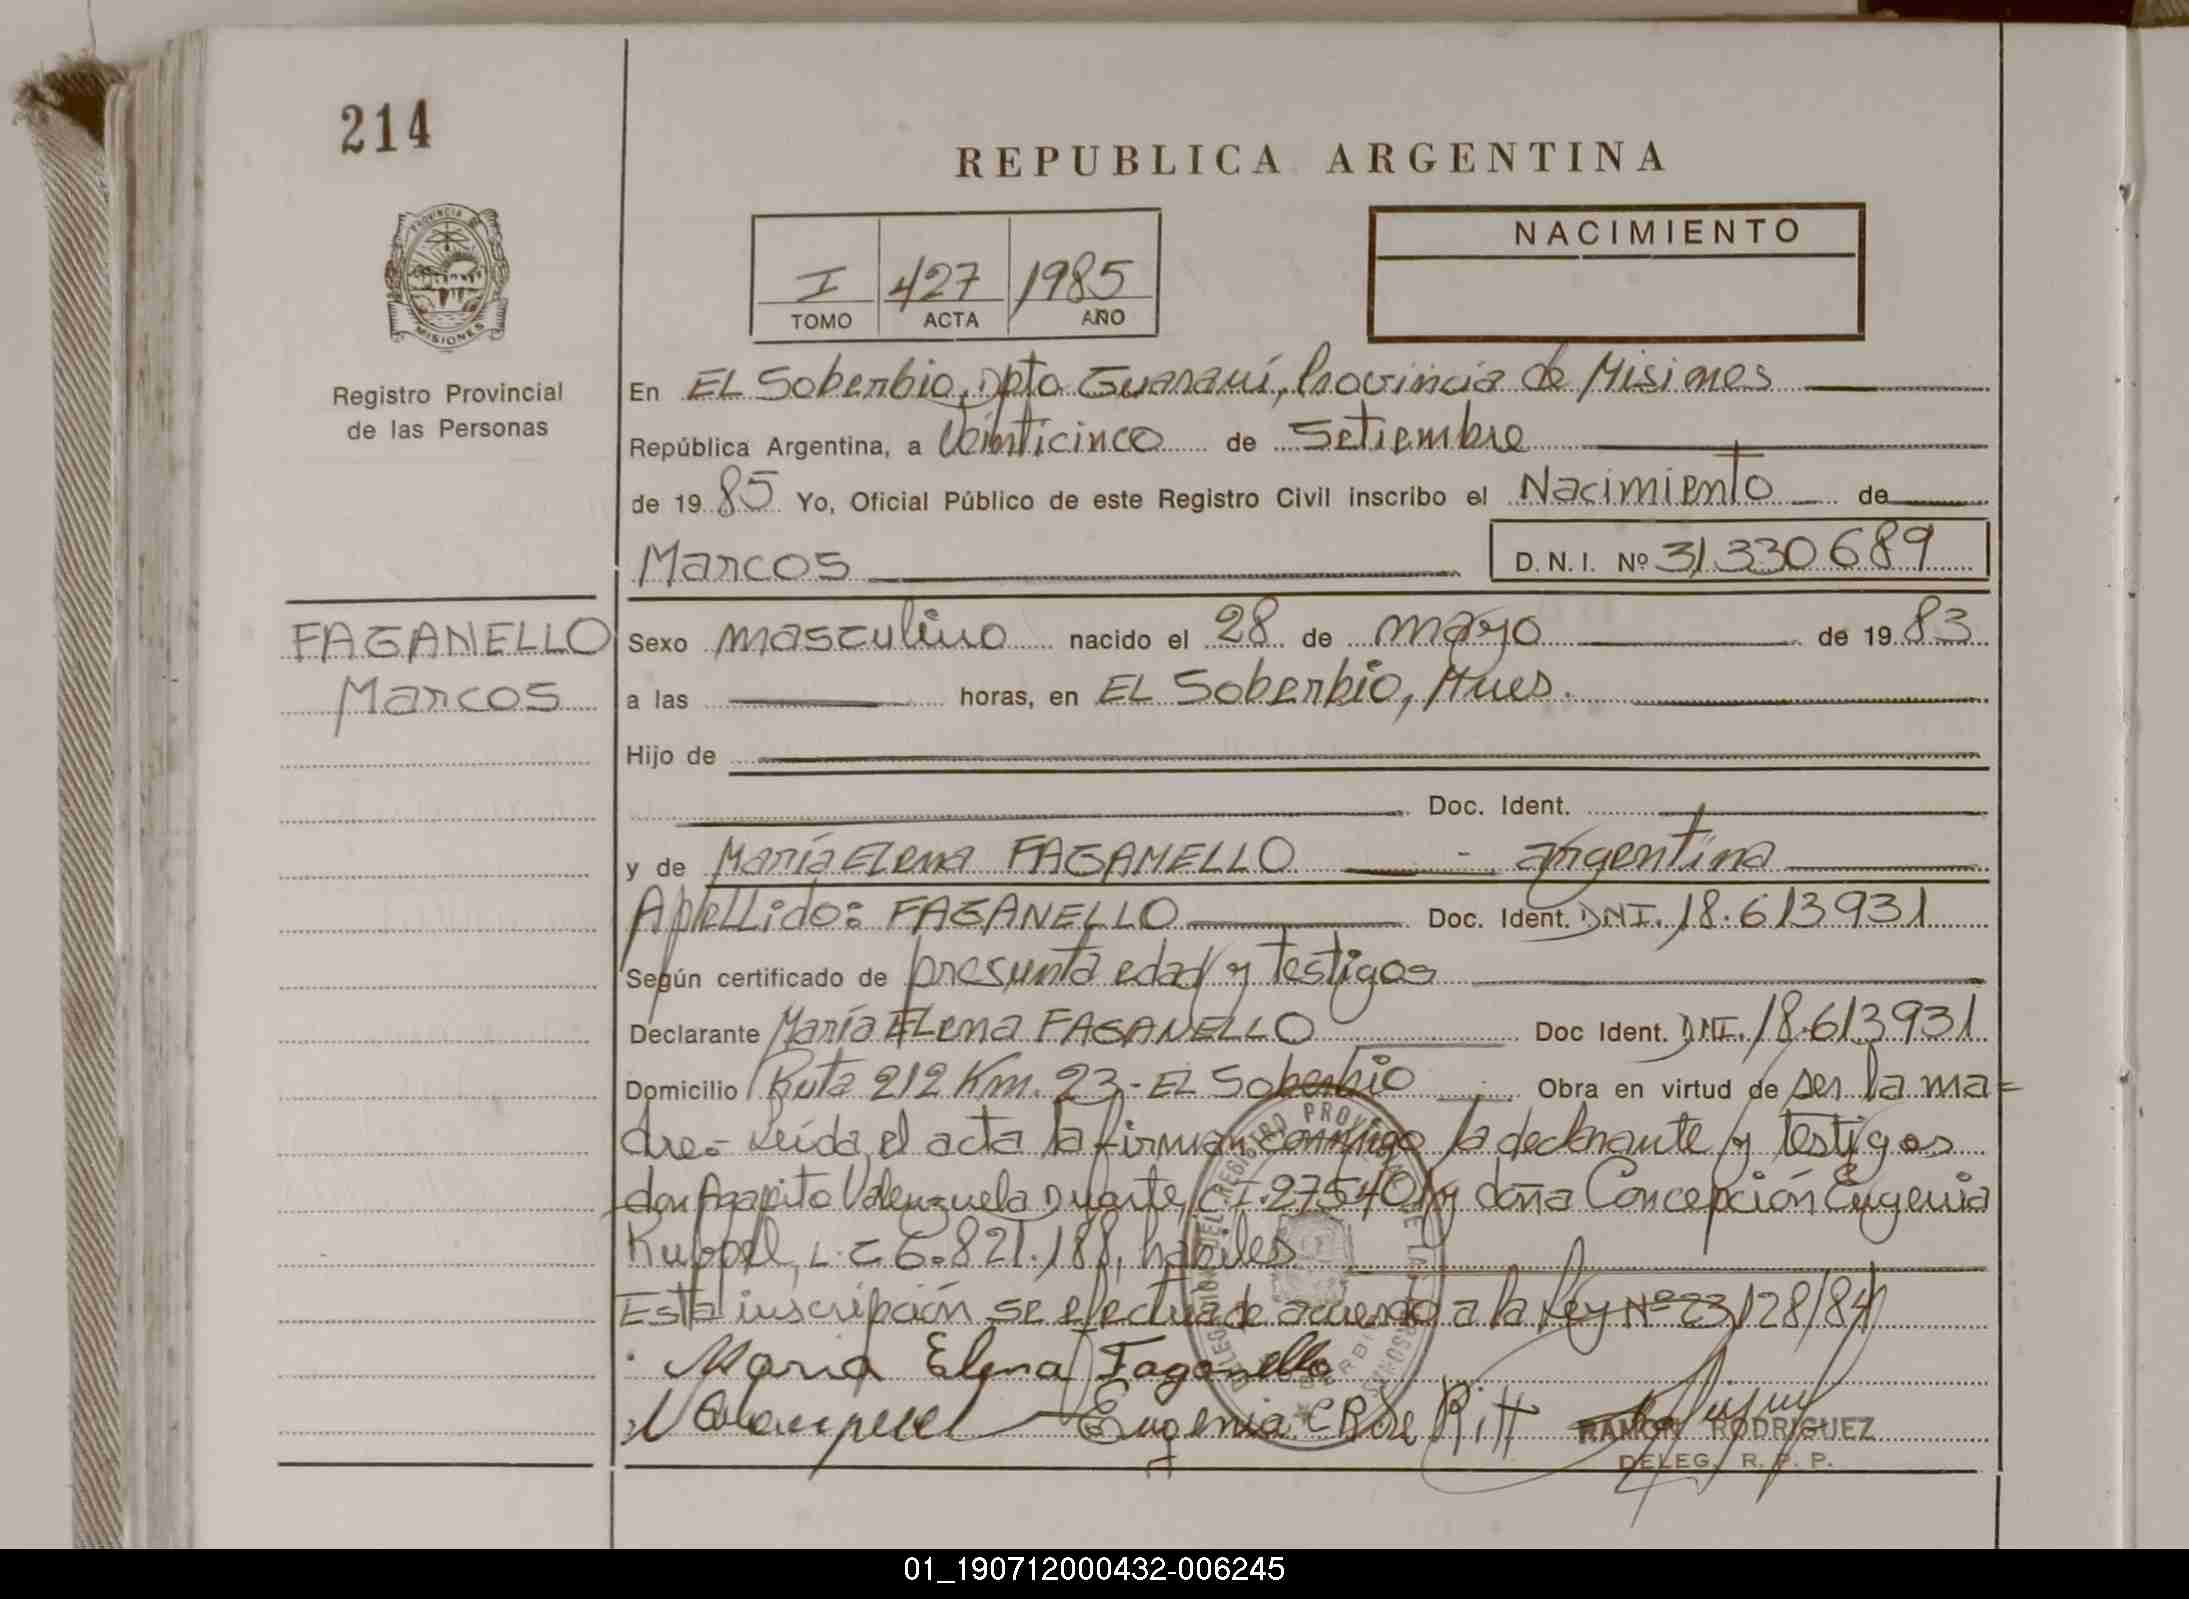 214
REPUBLICA ARGENTINA
PROVINCIA DE
MISIONES
Registro Provincial
de las Personas
I 427 1985
TOMO ACTA AÑO
NACIMIENTO
En EL Soberbio, Dpto Guaraní, Provincia de Misiones
República Argentina, a Veinticinco de Setiembre
de 1985 Yo, Oficial Público de este Registro Civil inscribo el Nacimiento de
Marcos D.N.I. Nº 31.330689
FAGANELLO
Marcos
Sexo masculino nacido el 28 de mayo de 1983
a las horas, en EL Soberbio, Mnes.
Hijo de
Doc. Ident.
y de María Elena FAGANELLO - argentina
Apellido: FAGANELLO Doc. Ident. DNI. 18.613931
Según certificado de presunta edad y testigos
Declarante María Elena FAGANELLO Doc Ident. DNI. 18.613931
Domicilio Ruta 212 Km. 23 - EL Soberbio Obra en virtud de ser la ma=
dre.- Leída el acta la firman conmigo la declarante y testigos
don Agapito Valenzuela Duarte, C.I. 275401 y doña Concepción Eugenia
Kuppel, L.C 6.821.188, hábiles
Esta inscripción se efectua de acuerdo a la Ley Nº 23128/84
Maria Elena Faganello
Eugenia C R de Ritt
RAMON RODRIGUEZ
DELEG. R. P. P.
01_190712000432-006245